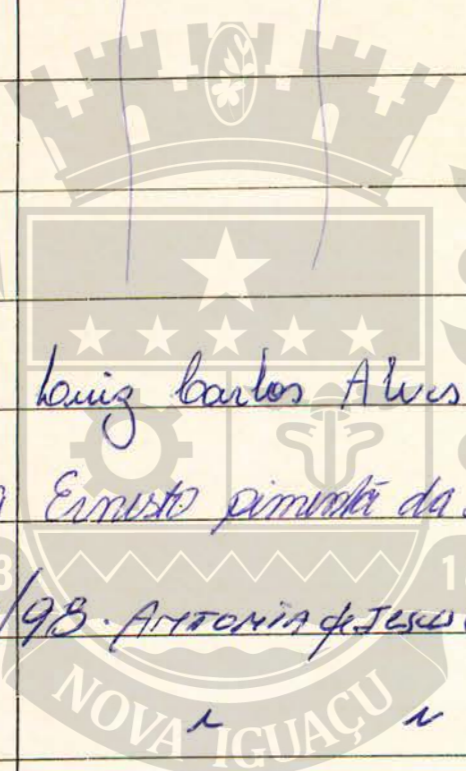 Luiz Carlos Alves
Ernesto pimentã da
/98. Antonia de Jesus
" "
NOVA IGUAÇU